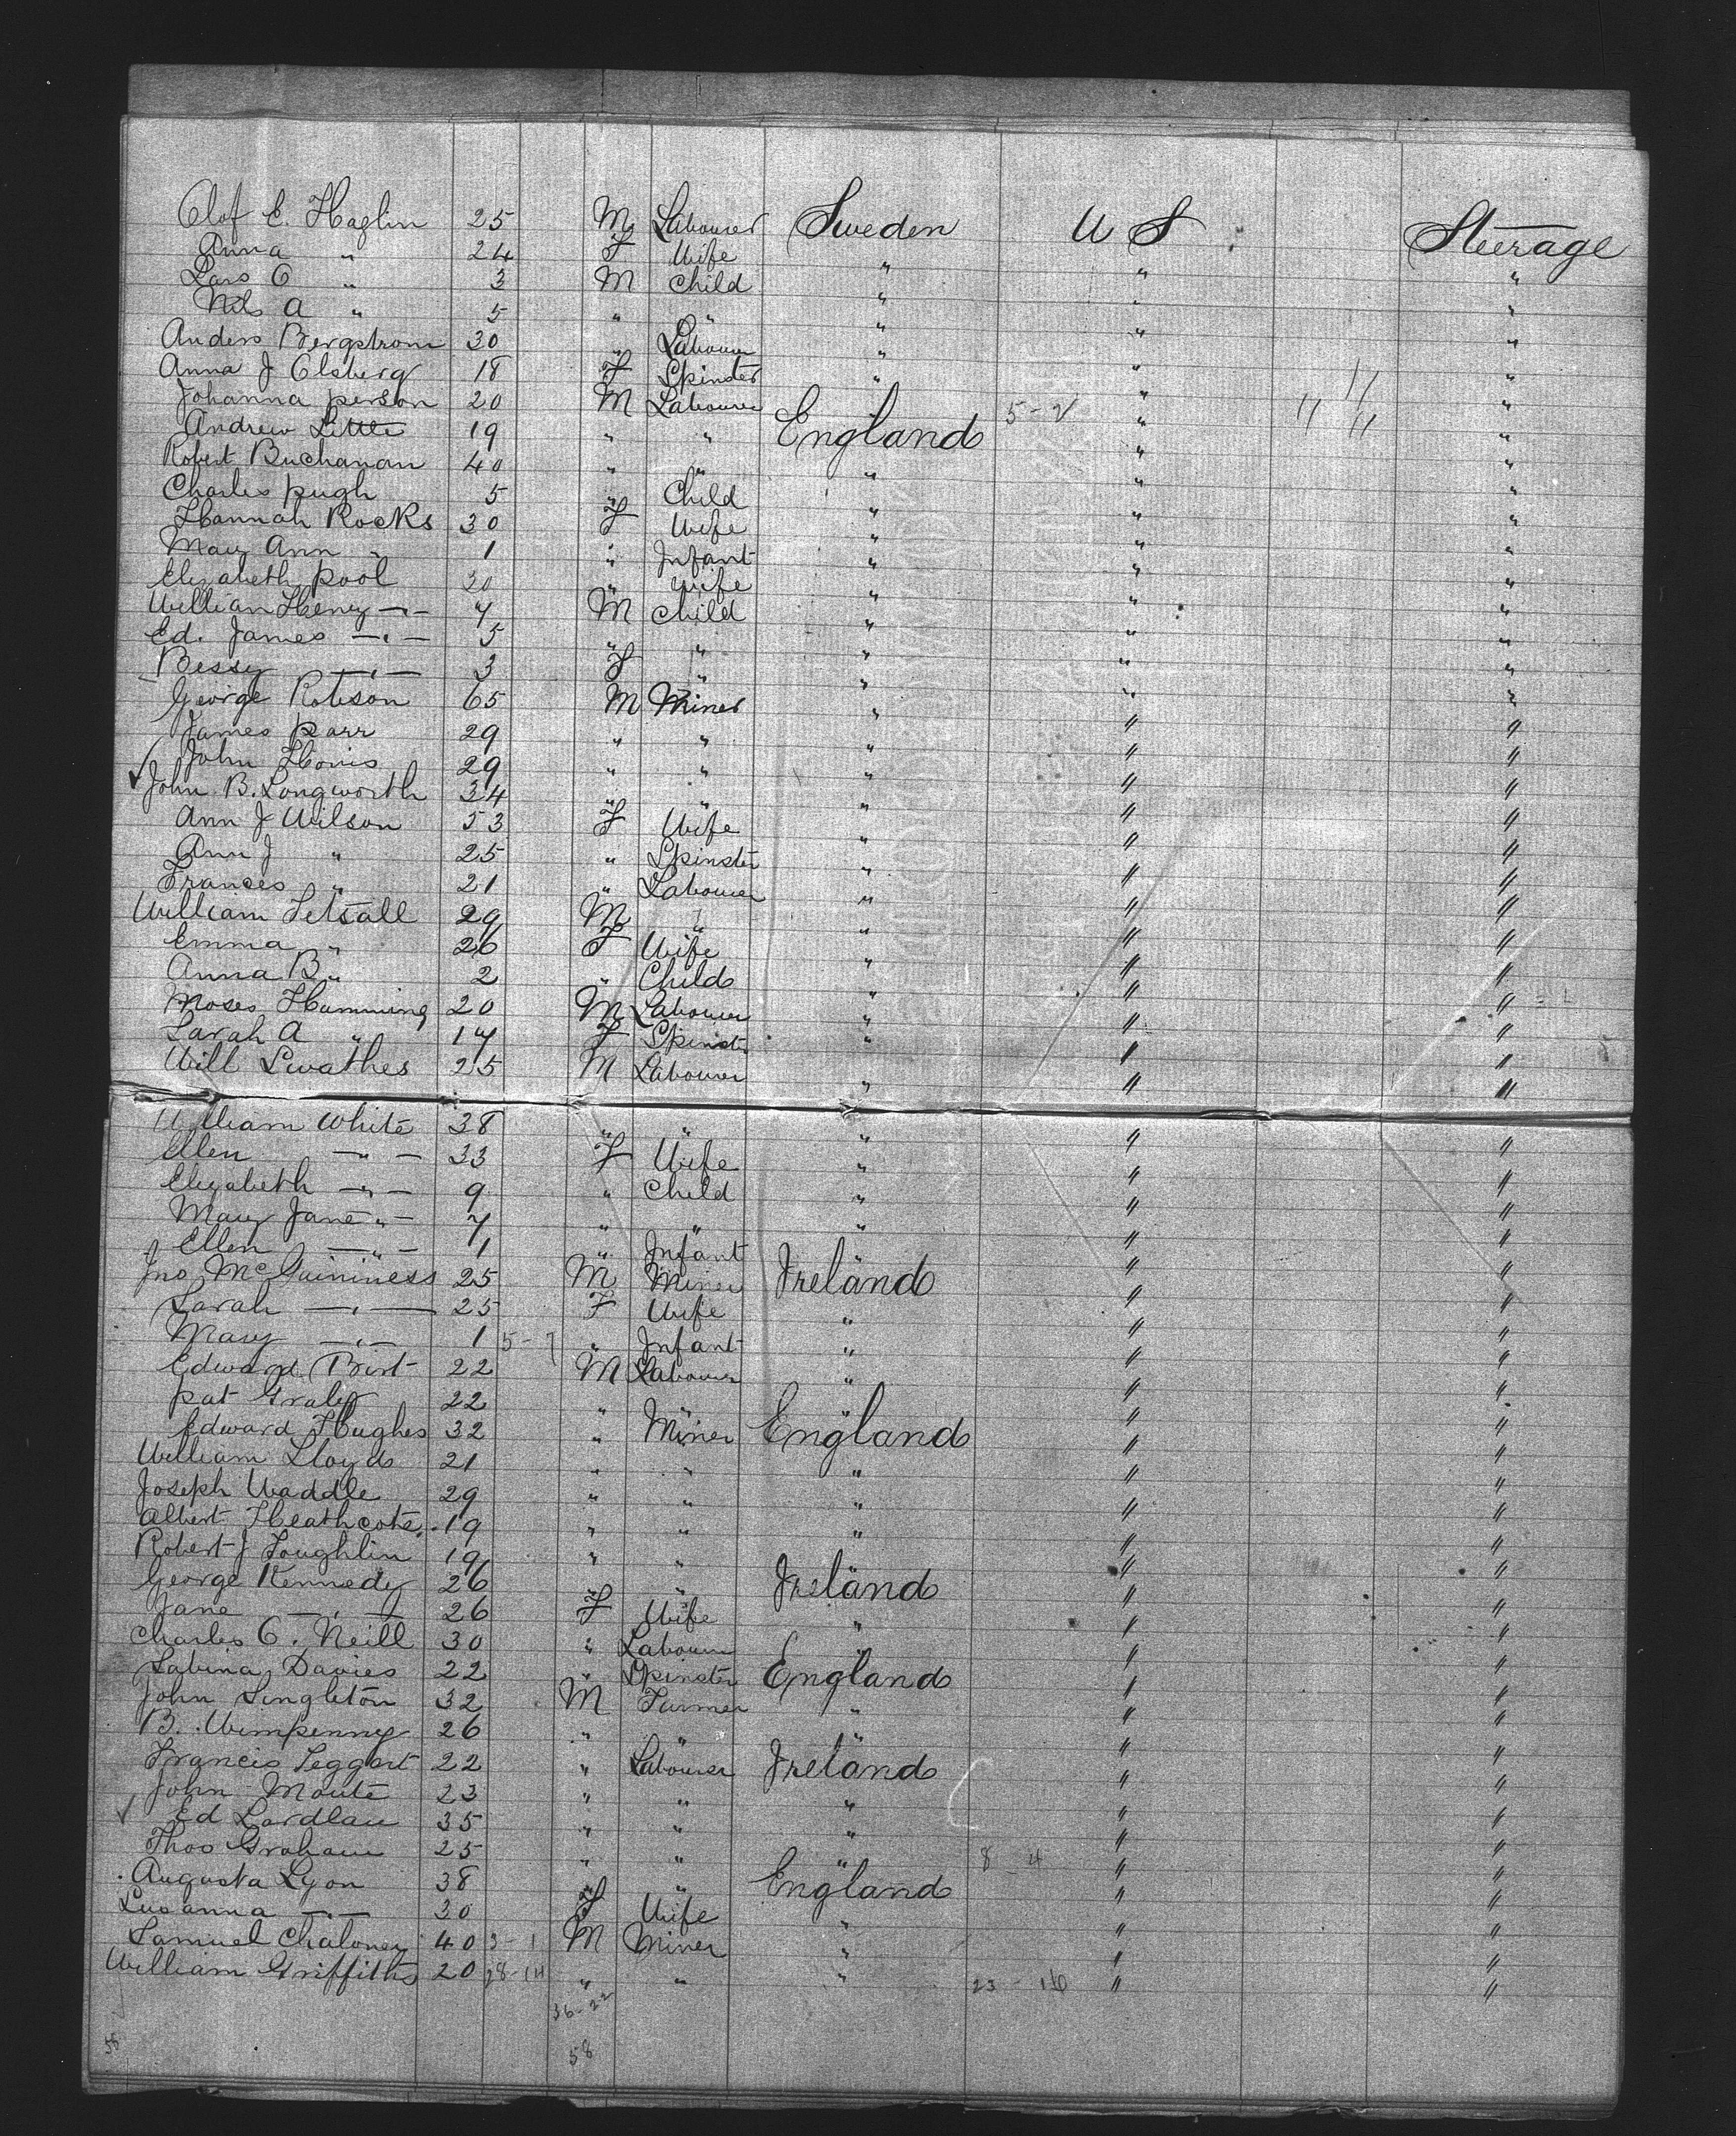 Olof E. Haglin 25 M Labourer Sweden U S Steerage
Anna " 24 F Wife " " "
Lars O " 3 M Child " " "
Nils A " 5 " " " " "
Anders Bergstrom 30 " Labourer " " "
Anna J Olsberg 18 F Spinster " " "
Johanna person 20 M Labourer " " "
Andrew Little 19 " " England 5-2 " "
Robert Buchanan 40 " " " " "
Charles pugh 5 " Child " " "
Hannah Rocks 30 F Wife " " "
Mary Ann " 1 " Infant " " "
Elizabeth pool 30 " Wife " " "
William Henry -"- 7 M Child " " "
Ed. James -"- 5 " " " " "
Bessy -"- 3 F " " " "
George Robson 65 M Miner " " "
James parr 29 " " " " "
John Horris 29 " " " " "
John B. Longworth 34 " " " " "
Ann J Wilson 53 F Wife " " "
Ann J " 25 " Spinster " " "
Frances " 21 " Labourer " " "
William Tetsall 29 M " " " "
Emma " 26 F Wife " " "
Anna B " 2 " Child " " "
Moses Humming 20 M Labourer " " "
Sarah A " 17 F Spinster " " "
Will Swathes 25 M Labourer " " "
William White 38 " " " " "
Ellen -"- 33 F Wife " " "
Elizabeth -"- 9 " Child " " "
Mary Jane -"- 7 " " " " "
Ellen -"- 1 " Infant " "
Jno McGuininess 25 M Miner Ireland " "
Sarah -"- 25 F Wife " " "
Mary -"- 1 5-7 " Infant " " "
Edward Birt 22 M Labourer " " "
pat Graley 22 " " " " "
Edward Hughes 32 " Miner England " "
William Lloyd 21 " " " " "
Joseph Waddle 29 " " " " "
Albert Heathcote 19 " " " " "
Robert J Loughlin 19 " " " "
George Kennedy 26 " Ireland " "
Jane -"- 26 F Wife " " "
Charles O. Neill 30 " Labourer " " "
Sabina Davies 22 " Spinster England " "
John Singleton 32 M Farmer " " "
B. Wimpenny 26 " " " " "
Francis Teggart 22 " Labourer Ireland " "
John Moute 23 " " " " "
Ed Lardlau 35 " " " " "
Thos Graham 25 " " " 8-4 " "
Augusta Lyon 38 " " England " "
Susanna -"- 30 F Wife " " "
Samuel Chaloner 40 3-1 M Miner " " "
William Griffiths 20 28-14 " " " 23-16 " "
36-22
58 58